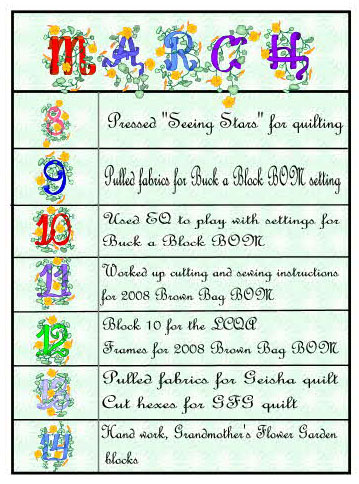 MARCH
8
Pressed "Seeing Stars" for quilting
9
Pulled fabrics for Buck a Block BOM setting
10
Used EQ to play with settings for
Buck a Block BOM
11
Worked up cutting and sewing instructions
for 2008 Brown Bag BOM
12
Block 10 for the LCQA
Frames for 2008 Brown Bag BOM
13
Pulled fabrics for Geisha quilt
Cut hexes for GFG quilt
14
Hand work, Grandmother's Flower Garden
blocks